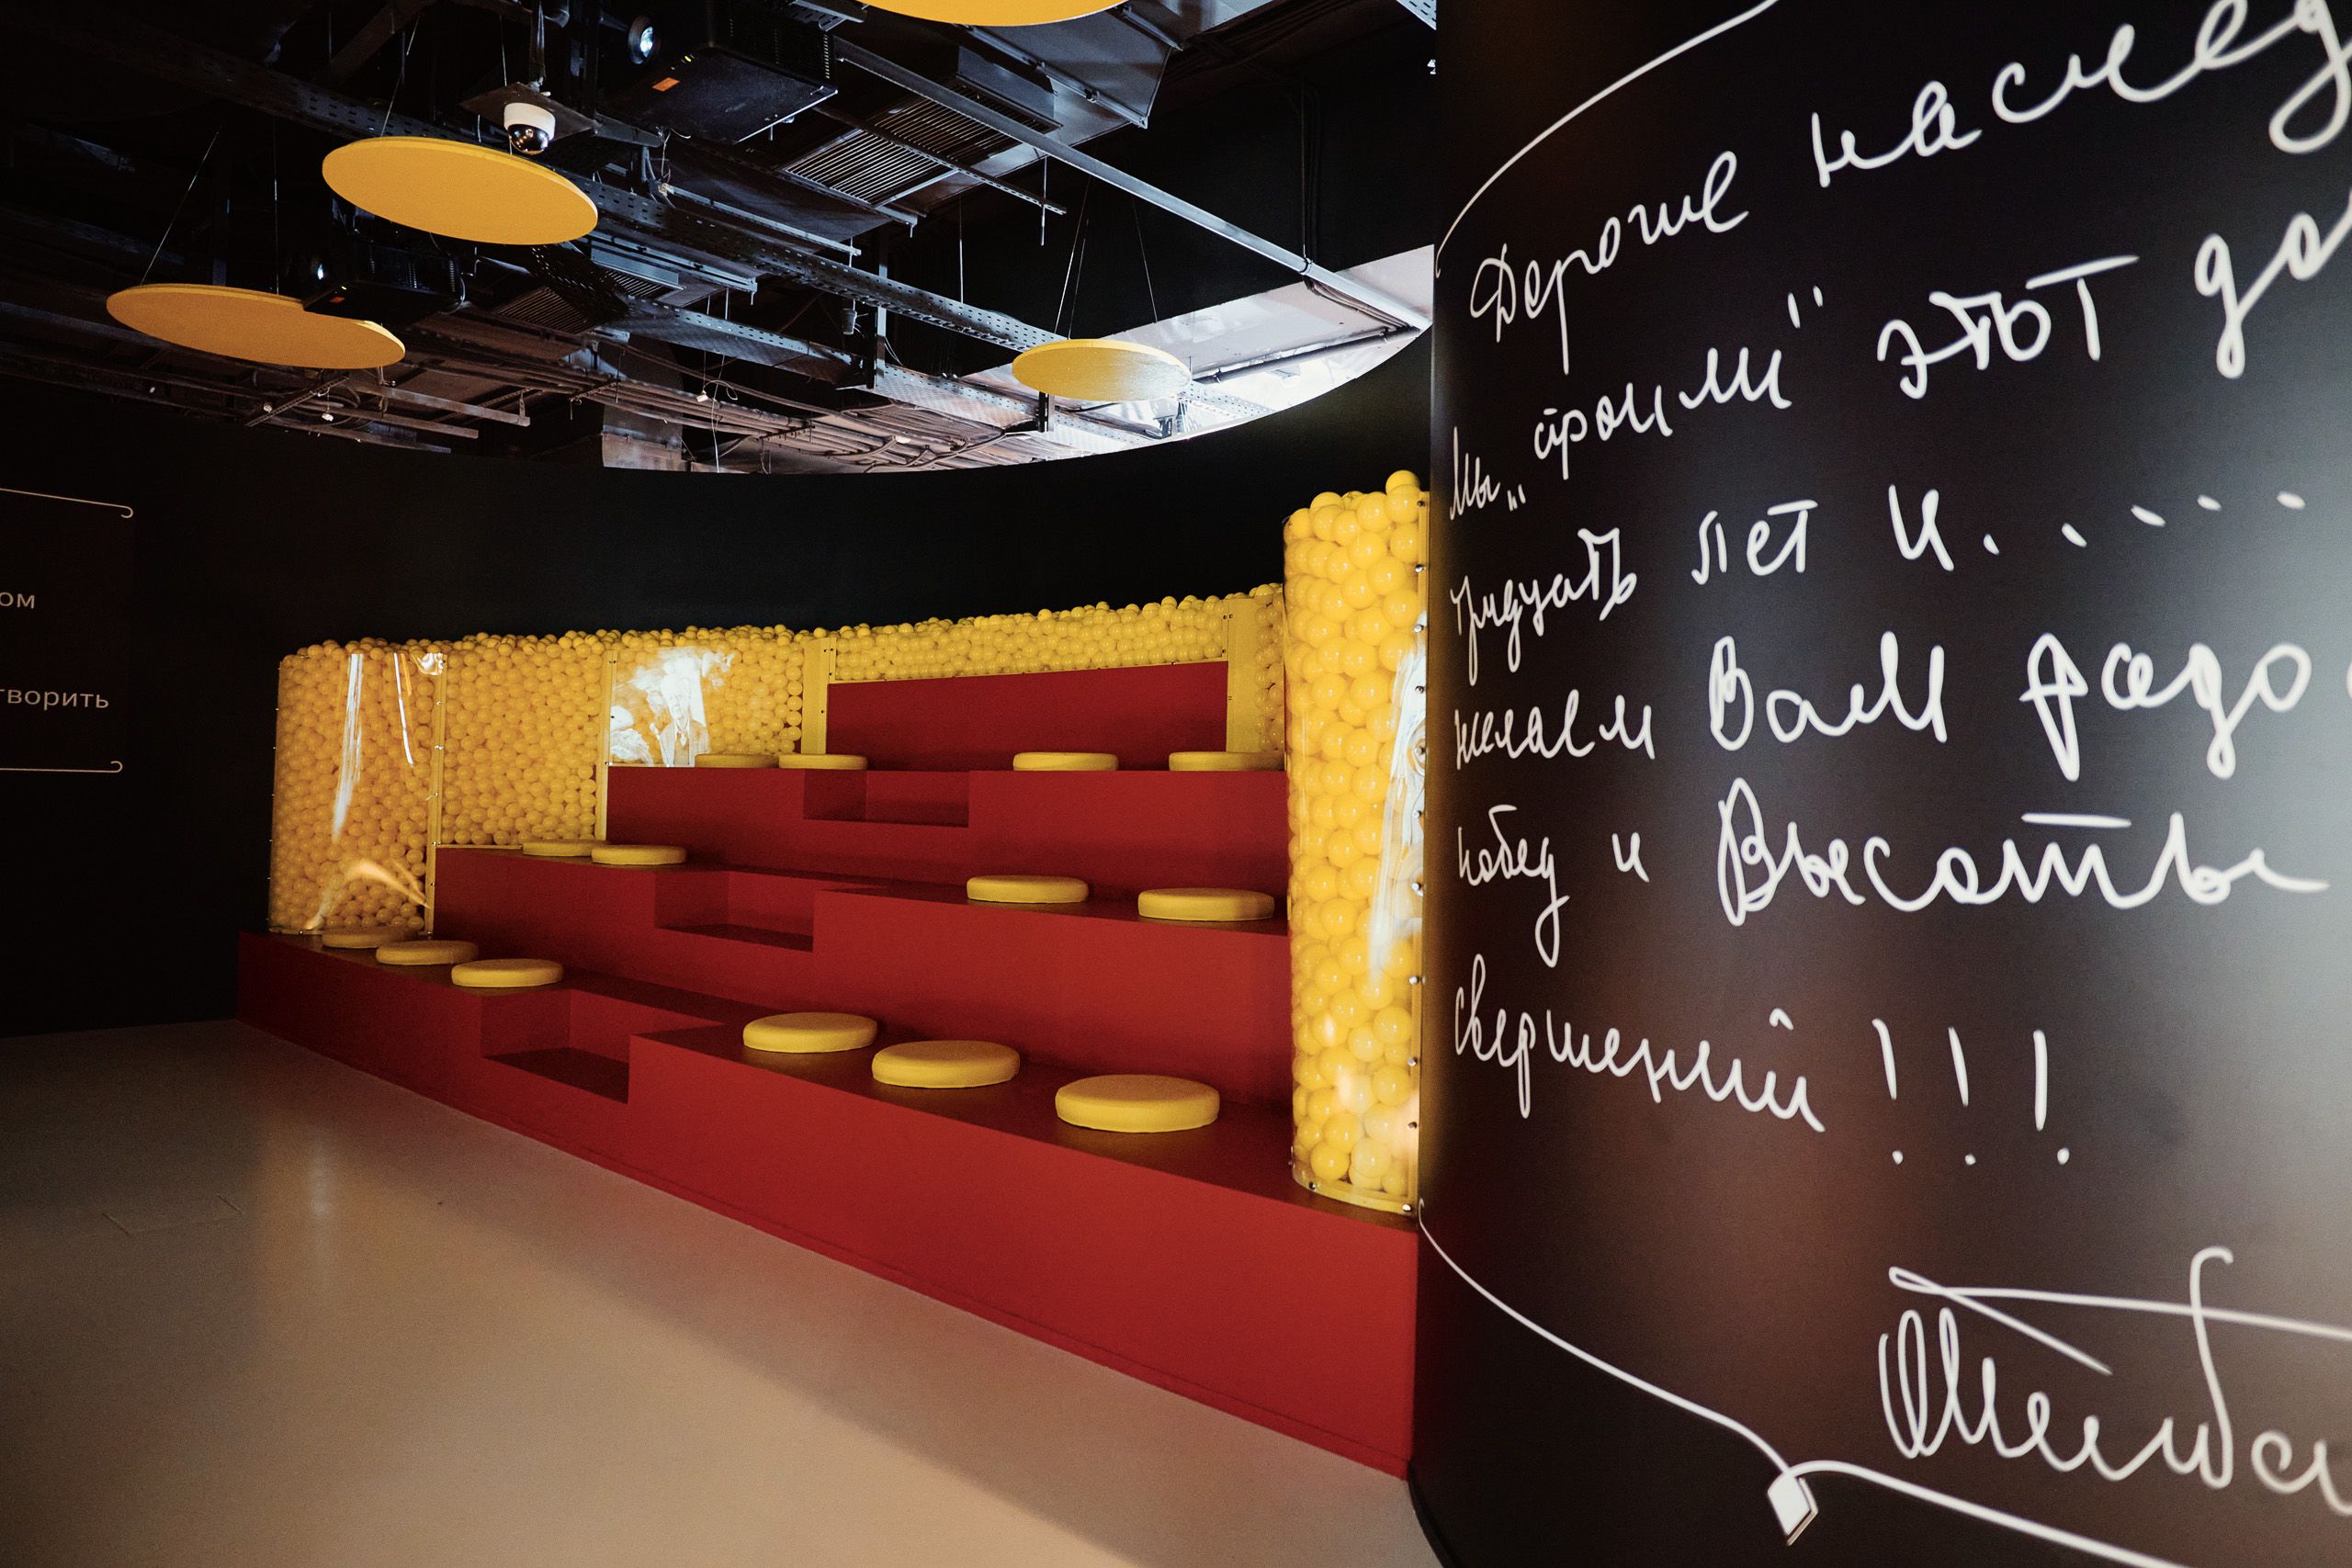 ом
творить
Дорогие наслед
Мы „строим" этот до
тридцать лет и. . . . . .
желаем Вам радо
побед и Высоты
свершений!!!